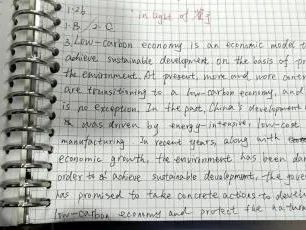 1-2b in light of
1.B. 2. C
3. Low-carbon economy is an economic model t
achieve sustainable development on the basis of pr
the environment. At present, more and more count
are transitioning to a low-carbon economy, and
is no exception. In the past, China's development
was driven by energy-intensive, low-cost
manufacturing. In recent years, along with
economic growth, the environment has been dam
order to achieve sustainable development, the gove
has promised to take concrete actions to develo
low-carbon economy and protect the natura